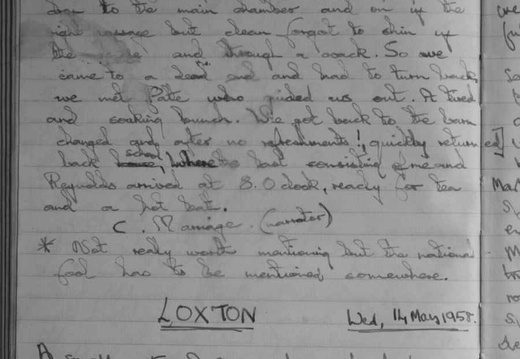 down to the main chamber and on up the
right passage but clean forgot to shin up
the and through a crack. So we
came to a dead end and had to turn back
we met Pete who guided us out. A tired
and soaking bunch. We got back to the barn
changed and after no refreshments*! quickly returned
back where the last consisting of me and
Reynolds arrived at 8.0 clock, ready for tea
and a hot bath.
C. Marriage. (narrator)
* Not really worth mentioning but the national
fool has to be mentioned somewhere.
LOXTON Wed, 14 May, 1958.
A